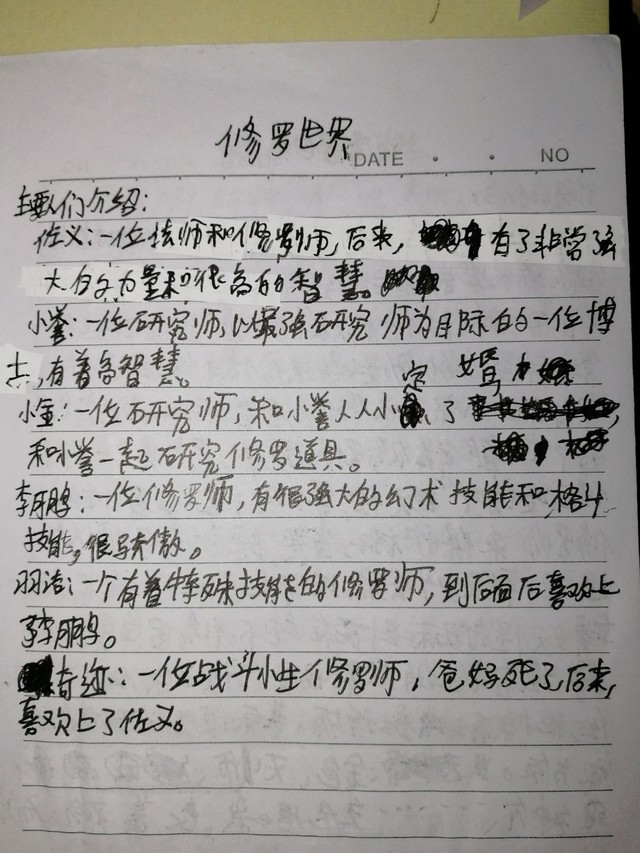 修罗世界
DATE · · NO
主要人们介绍:
佐义:一位法师和修罗师,后来,有了非常强
大的力量和很高的智慧。
小誉:一位研究师,以最强研究师为目标的一位博
士,有着高智慧。
小金:一位研究师,和小誉从小定婚了,
和小誉一起研究修罗道具。
李鹏:一位修罗师,有很强大的幻术技能和格斗
技能,很骄傲。
羽洁:一个有着特殊技能的修罗师,到后面后喜欢上
李鹏。
奇迹:一位战斗小生修罗师,爸妈死了,后来,
喜欢上了佐义。